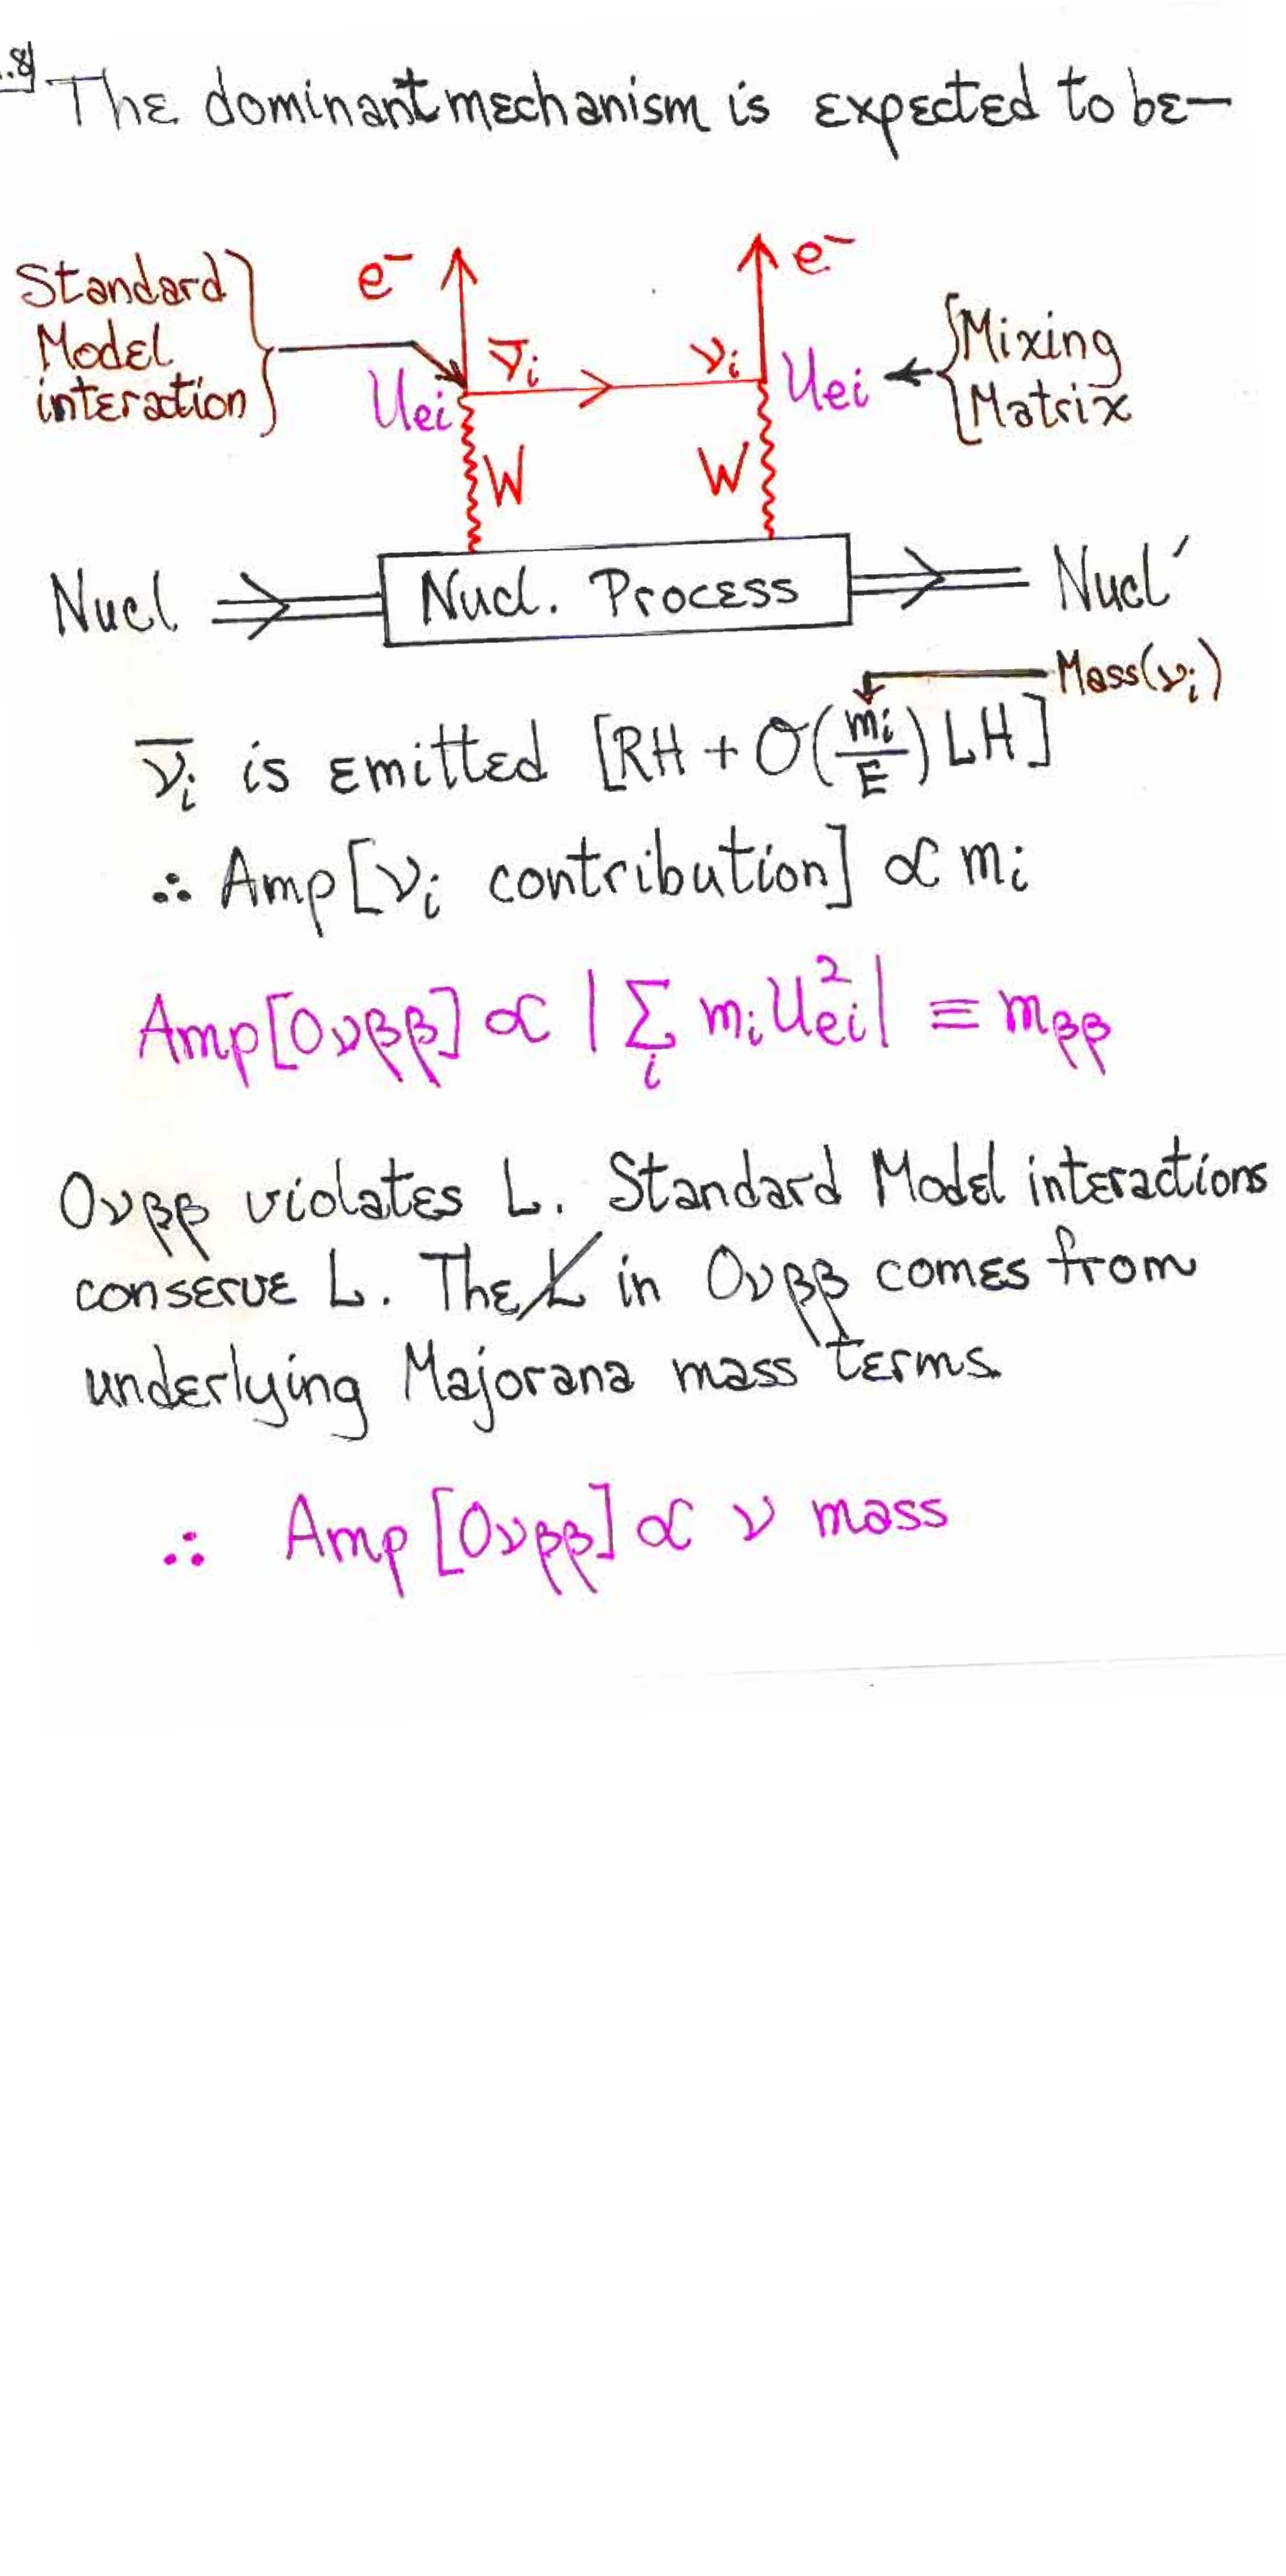 .8
The dominant mechanism is expected to be—
Standard
Model
interaction
e⁻
e⁻
ν̅i
νi
Uei
Uei
Mixing
Matrix
W
W
Nucl
Nucl. Process
Nucl′
Mass(νi)
ν̅i is emitted [RH + O(mi/E) LH]
∴ Amp[νi contribution] ∝ mi
Amp[0νββ] ∝ |∑i mi Uei²| ≡ mββ
0νββ violates L. Standard Model interactions
conserve L. The L̸ in 0νββ comes from
underlying Majorana mass terms.
∴ Amp[0νββ] ∝ ν mass